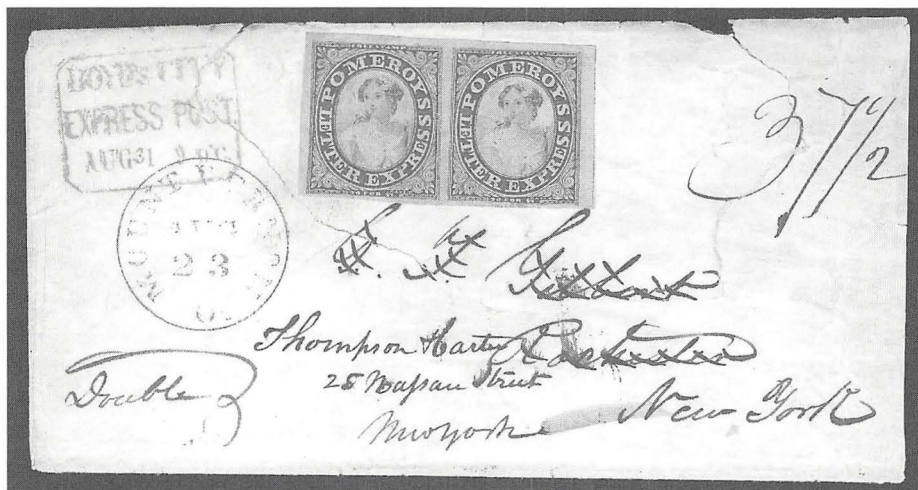 BOYD'S CITY
EXPRESS POST.
AUG 31
POMEROY'S LETTER EXPRESS
POMEROY'S LETTER EXPRESS
37 1/2
MOUNT VERNON O.
AUG
23
New York
Thompson Harter
28 Nassau Street
New York
Double